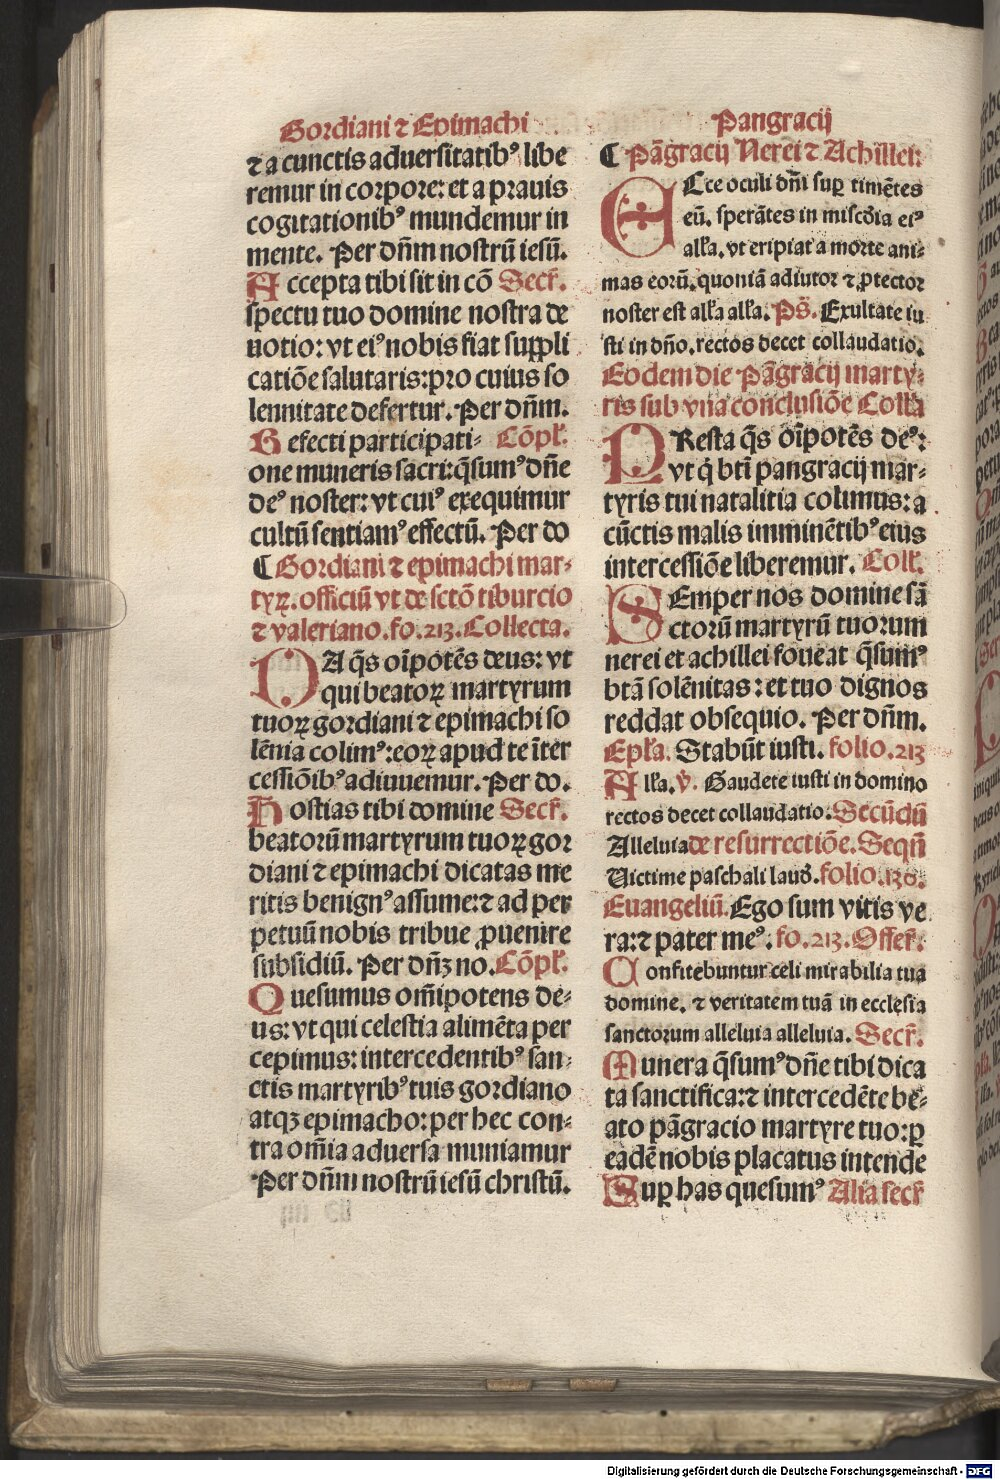 Gordiani ⁊ Epimachi
⁊ a cunctis aduersitatibꝰ libe
remur in corpore: et a prauis
cogitationibꝰ mundemur in
mente. Per dñm nostrũ iesũ.
Accepta tibi sit in cõ Secř.
spectu tuo domine nostra de
uotio: vt eiꝰ nobis fiat suppli
catiõe salutaris: pro cuius so
lennitate defertur. Per dñm.
Refecti participati⸗ Cõpl̃.
one muneris sacri: q̃sumꝰ dñe
deꝰ noster: vt cuiꝰ exequimur
cultũ sentiamꝰ effectũ. Per do
¶ Gordiani ⁊ epimachi mar⸗
tyꝝ. officiũ vt de sctõ tiburcio
⁊ valeriano. fo. 213. Collecta.
DA q̃s oĩpotẽs deus: vt
qui beatoꝝ martyrum
tuoꝝ gordiani ⁊ epimachi so
lẽnia colimꝰ: eoꝝ apud te ĩter
cessiõibꝰ adiuuemur. Per do.
Hostias tibi domine Secř.
beatorũ martyrum tuoꝝ gor
diani ⁊ epimachi dicatas me
ritis benignꝰ assume: ⁊ ad per
petuũ nobis tribue ꝓuenire
subsidiũ. Per dñꝫ no. Cõpl̃.
Quesumus om̃ipotens de⸗
us: vt qui celestia alimẽta per
cepimus: intercedentibꝰ san⸗
ctis martyribꝰ tuis gordiano
atqꝫ epimacho: per hec con⸗
tra om̃ia aduersa muniamur
Per dñm nostrũ iesũ christũ.
Pangracij
¶ Pãgracij Nerei ⁊ Achillei:
ECce oculi dñi suꝑ timẽtes
eũ. sperãtes in misc̃dia eiꝰ
alľa. vt eripiat a morte ani⸗
mas eorũ. quoniã adiutor ⁊ ꝓtector
noster est alľa alľa. Ps̃. Exultate iu
sti in dño. rectos decet collaudatio.
Eodem die Pãgracij marty⸗
ris sub vna conclusiõe Colľa
PResta q̃s oĩpotẽs deꝰ:
vt q̃ bti pangracij mar⸗
tyris tui natalitia colimus: a
cũctis malis imminẽtibꝰ eius
intercessiõe liberemur. Colľ.
SEmper nos domine sã
ctorũ martyrũ tuorum
nerei et achillei foueat q̃sumꝰ
btã solẽnitas: et tuo dignos
reddat obsequio. Per dñm.
Epľa. Stabũt iusti. folio. 213
Alľa. ℣. Gaudete iusti in domino
rectos decet collaudatio. Secũdũ
Alleluia de resurrectiõe. Seqũ
Uictime paschali laud̃. folio. 136.
Euangeliũ. Ego sum vitis ve
ra: ⁊ pater meꝰ. fo. 213. Offer̃.
Confitebuntur celi mirabilia tua
domine. ⁊ veritatem tuã in ecclesia
sanctorum alleluia alleluia. Secř.
Munera q̃sumꝰ dñe tibi dica
ta sanctifica: ⁊ intercedẽte be⸗
ato pãgracio martyre tuo: ꝑ
eadẽ nobis placatus intende
Suꝑ has quesumꝰ Alia secř
Digitalisierung gefördert durch die Deutsche Forschungsgemeinschaft - DFG